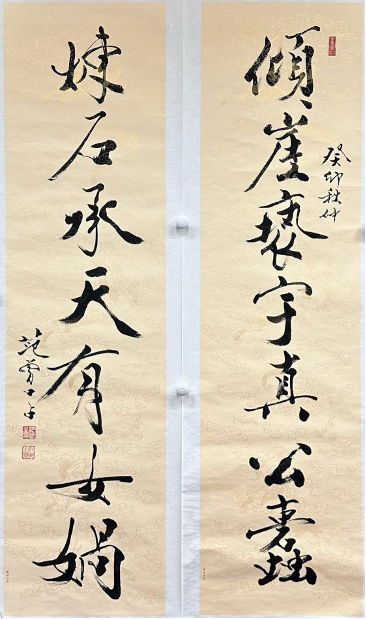 傾崖褻宇真公蠹
癸卯秋仲
煉石承天有女媧
范曾